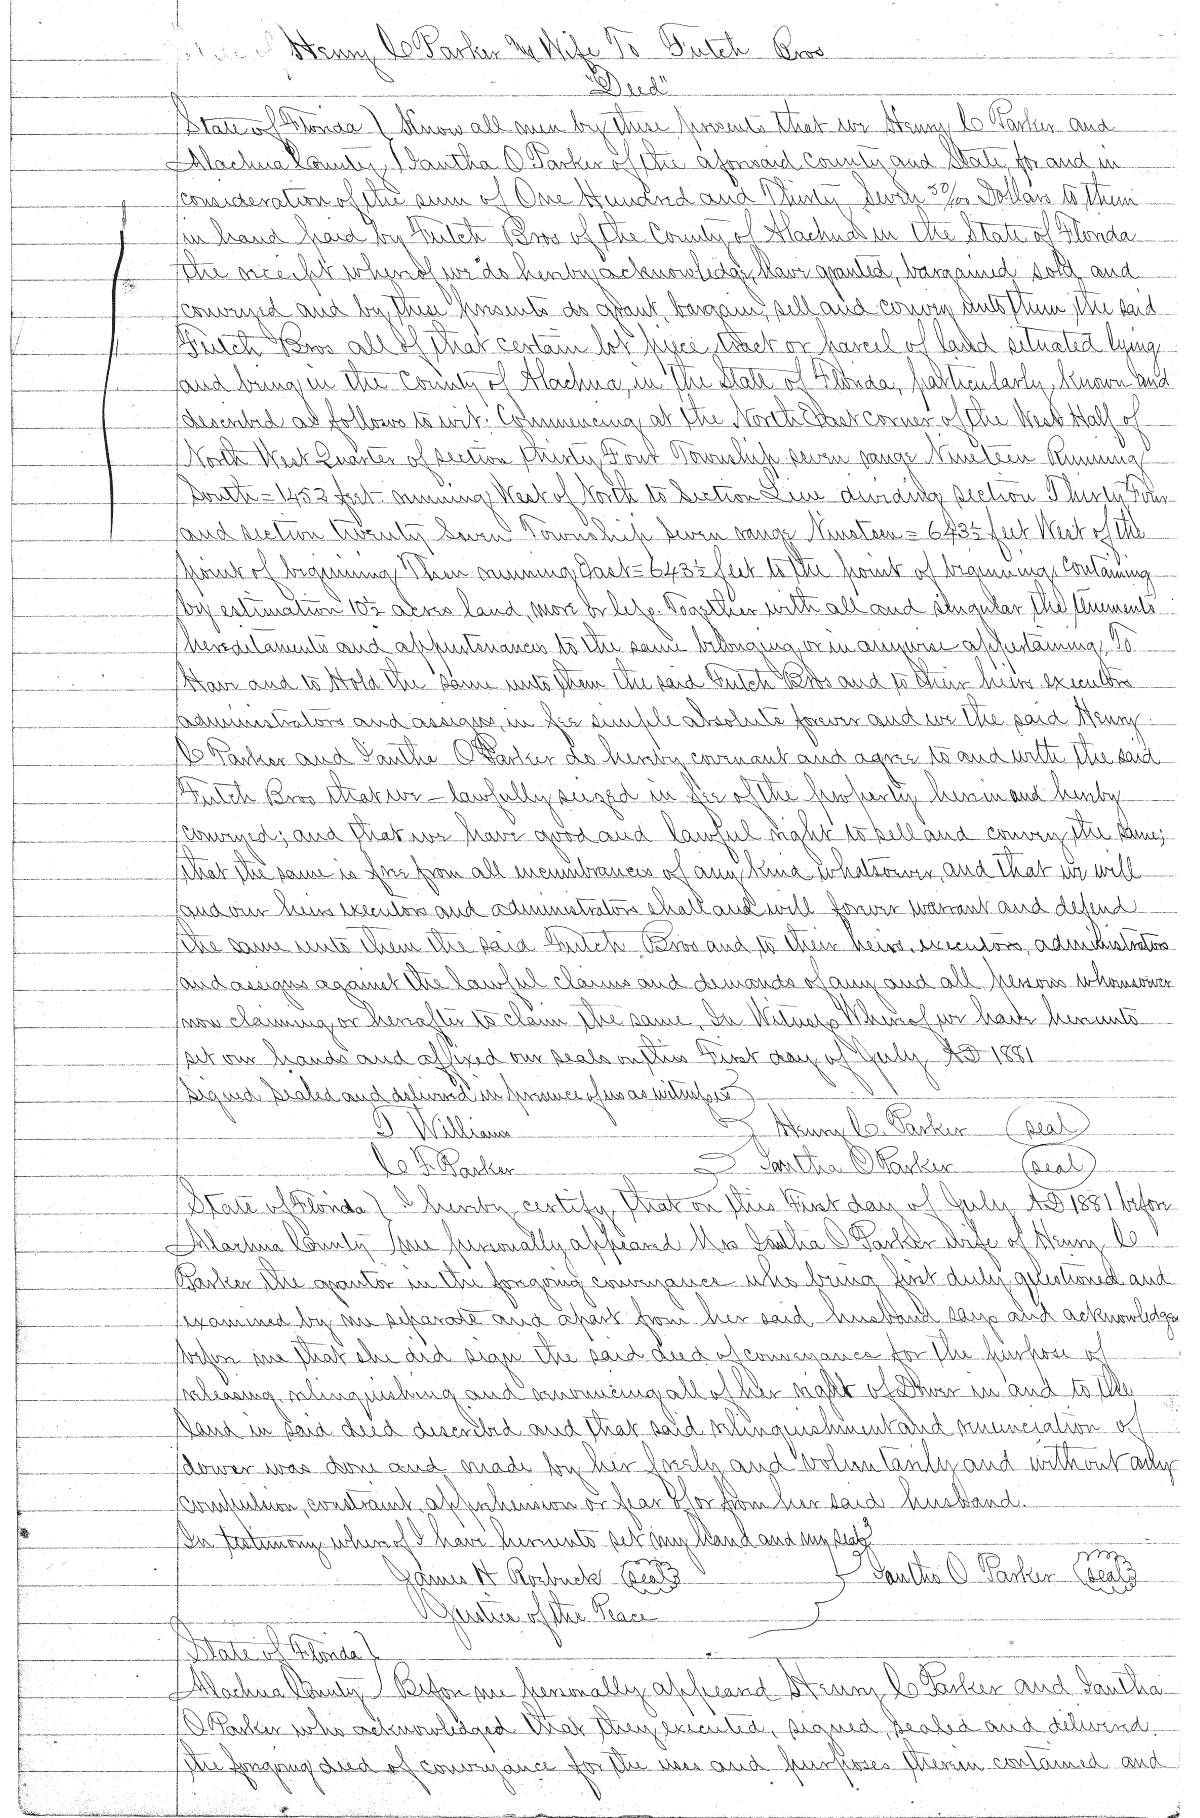 Henry C Parker & Wife To Futch Bros
"Deed"
State of Florida } Know all men by these presents that we Henry C Parker and
Alachua County } Iantha O Parker of the aforesaid county and State, for and in
consideration of the sum of One Hundred and Thirty Seven 50/100 Dollars to them
in hand paid by Futch Bros of the County of Alachua in the State of Florida
the receipt whereof we do hereby acknowledge, have granted, bargained sold and
conveyed and by these presents do grant, bargain, sell and convey unto them the said
Futch Bros all of that certain lot piece tract or parcel of land situated lying
and being in the County of Alachua, in the State of Florida, particularly known and
described as follows to wit: Commencing at the North East corner of the West Half of
North West Quarter of section thirty Four Township seven range Nineteen Running
South = 1452 feet running West of North to Section Line dividing section Thirty Four
and section twenty Seven Township Seven range Nineteen = 643½ feet West of the
point of beginning Then running East = 643½ feet to the point of beginning, containing
by estimation 10½ acres land, more or less. Together with all and singular the tenements
hereditaments and appurtenances to the same belonging or in anywise appertaining, To
Have and to Hold the same unto them the said Futch Bros and to their heirs executors
administrators and assigns, in fee simple absolute forever and we the said Henry
C Parker and Iantha O Parker do hereby covenant and agree to and with the said
Futch Bros that we – lawfully seized in fee of the property herein and hereby
conveyed; and that we have good and lawful right to sell and convey the same;
that the same is free from all incumbrances of any kind whatsoever, and that we will
and our heirs executors and administrators shall and will forever warrant and defend
the same unto them the said Futch Bros and to their heirs, executors, administrators
and assigns against the lawful claims and demands of any and all persons whomsoever
now claiming or hereafter to claim the same, In Witness Whereof we have hereunto
set our hands and affixed our seals on this First day of July AD 1881
Signed Sealed and delivered in presence of us as witnesses }
T Williams } Henry C. Parker (seal)
C F Parker } Iantha O Parker (seal)
State of Florida } I hereby certify, that on this First day of July AD 1881 before
Alachua County } me personally appeared Mrs Iantha O Parker wife of Henry C
Parker the grantor in the forgoing conveyance who being first duly questioned and
examined by me separate and apart from her said husband says and acknowledges
before me that she did sign the said deed of conveyance for the purpose of
releasing, relinquishing and renouncing all of her right of Dower in and to the
land in said deed described and that said relinquishment and renunciation of
dower was done and made by her freely and voluntarily and without any
compulsion, constraint, apprehension or fear of or from her said husband.
In testimony whereof I have hereunto set my hand and my seal }
James H Roebuck (seal) } Iantha O Parker (seal)
Justice of the Peace
State of Florida }
Alachua County } Before me personally appeared Henry C Parker and Iantha
O Parker who acknowledged that they executed, signed, sealed and delivered
the forgoing deed of conveyance for the uses and purposes therein contained and